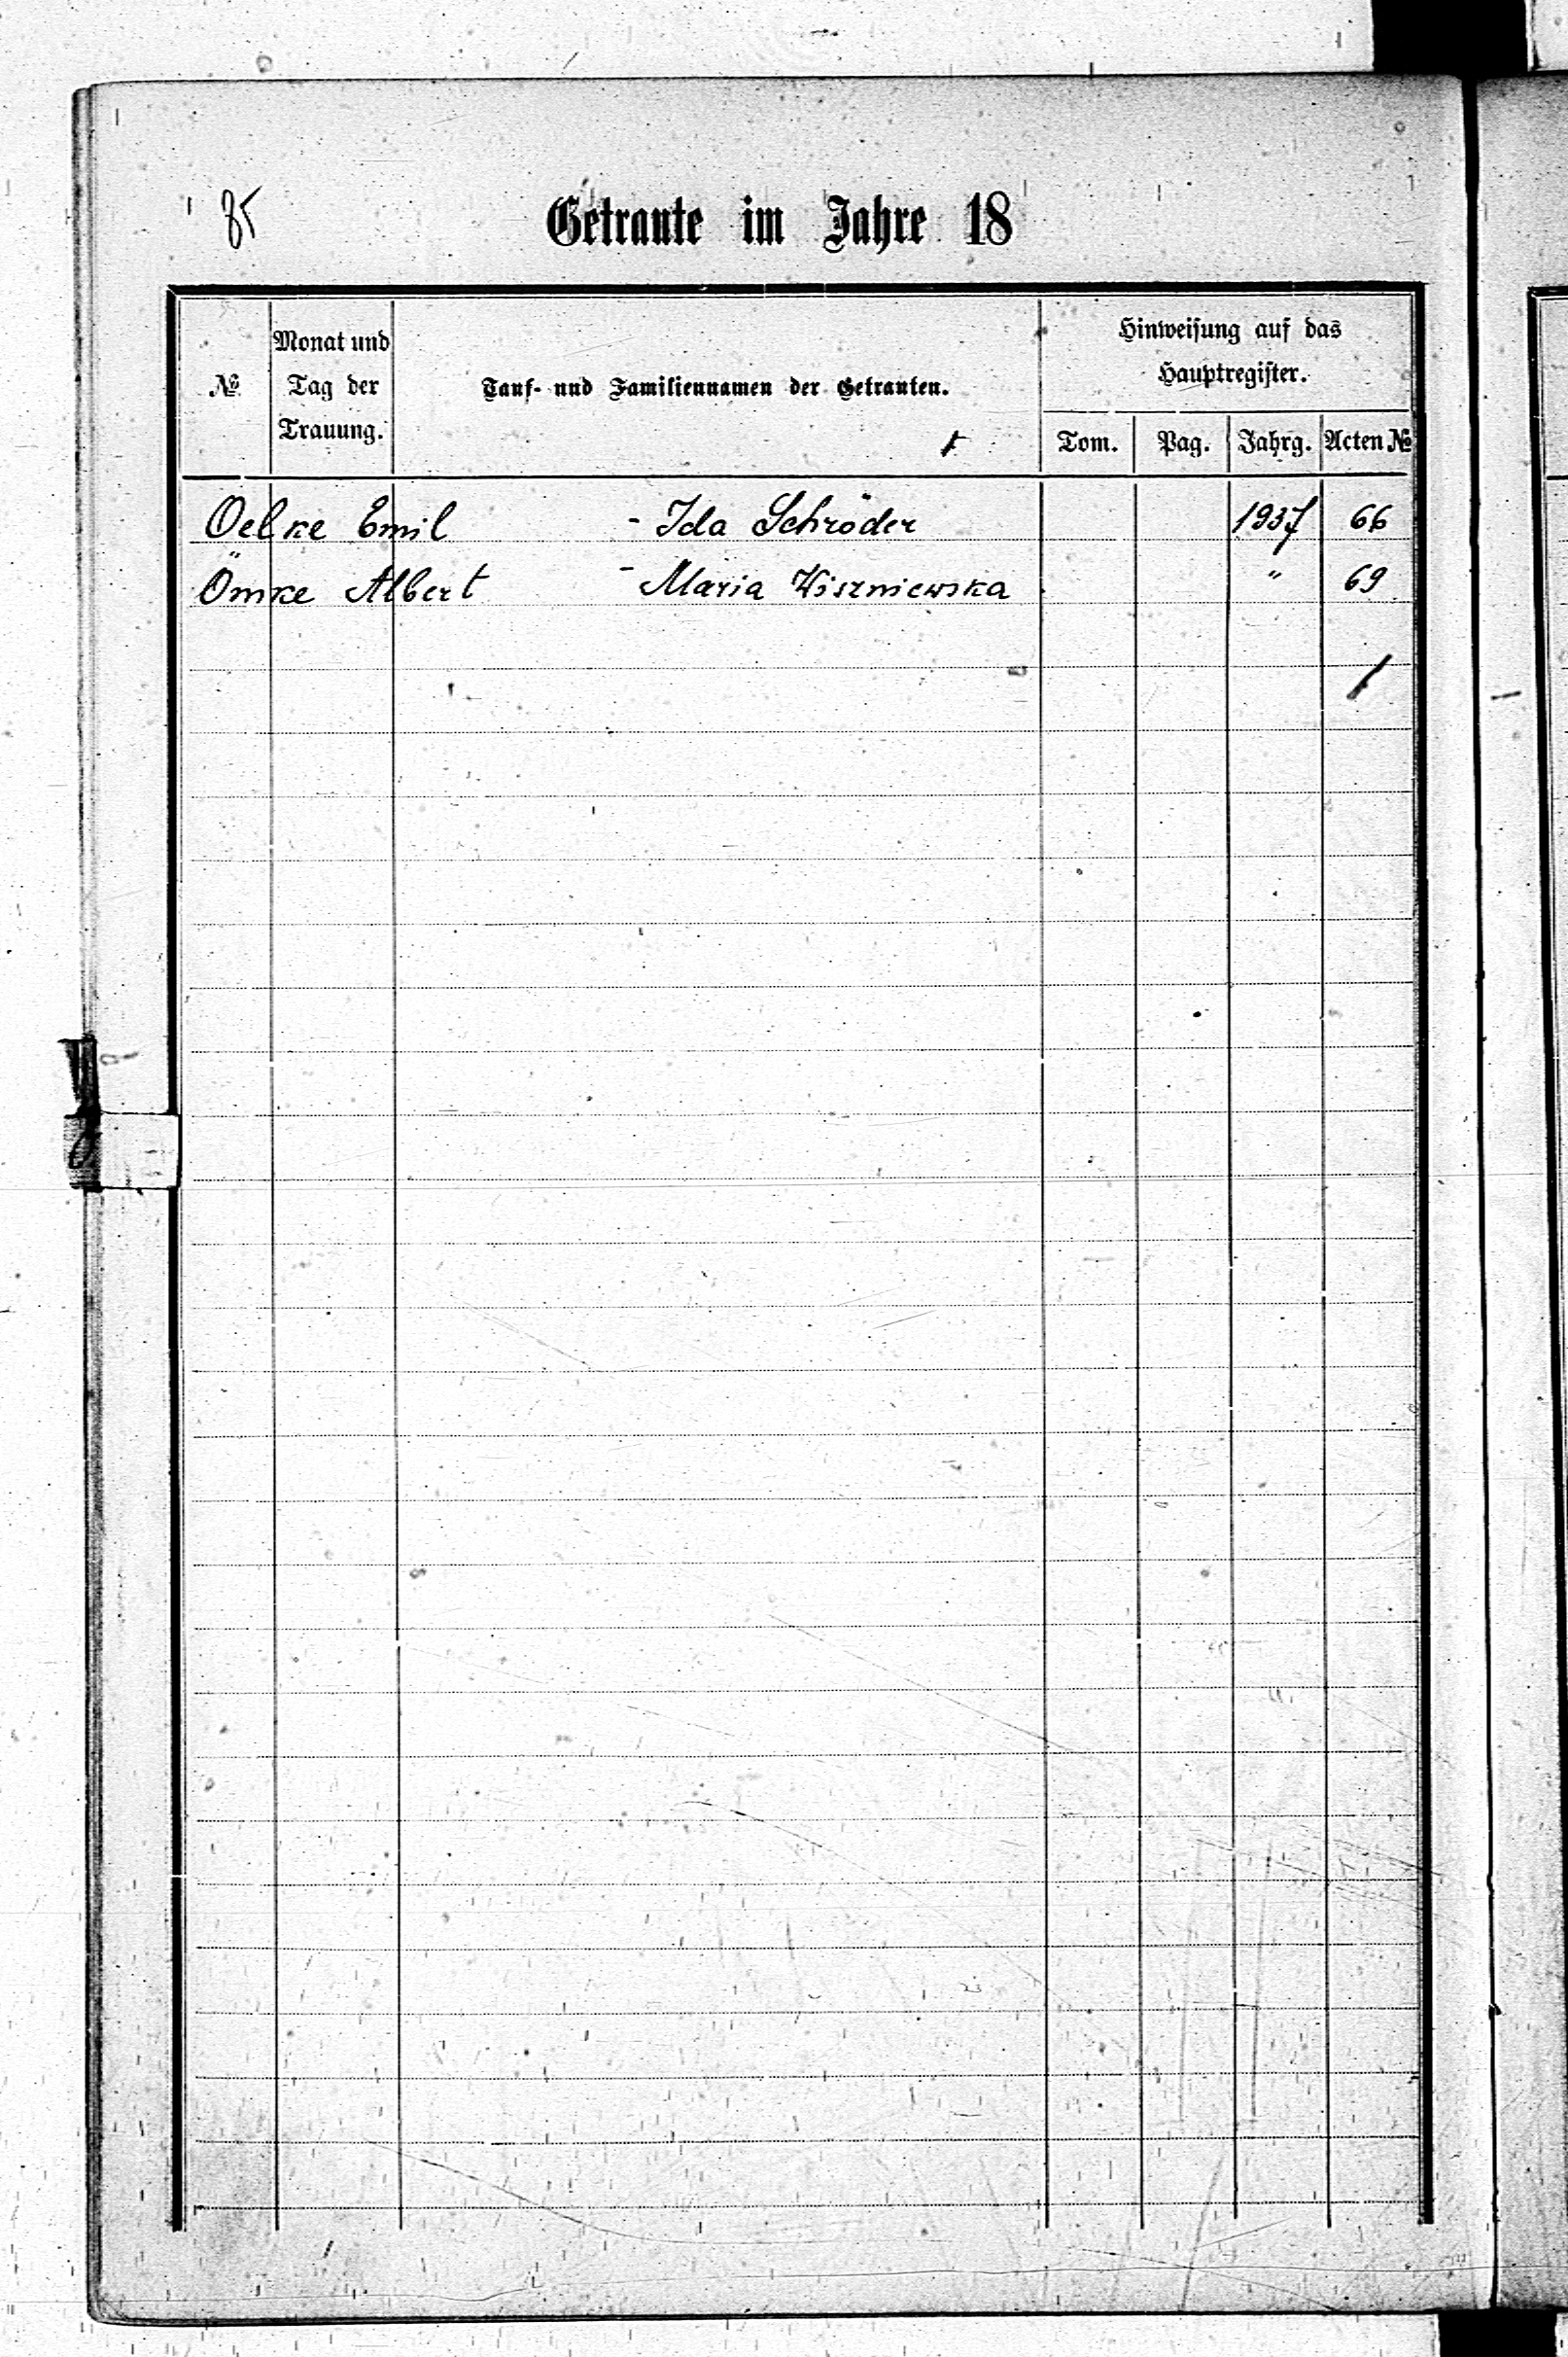 85
Getraute im Jahre 18
№ Monat und Tag der Trauung. Tauf- und Familiennamen der Getrauten. Hinweisung auf das Hauptregister.
Tom. Pag. Jahrg. Acten №
Oelke Emil - Ida Schröder 1937 66
Ömke Albert - Maria Wiszniewska " 69